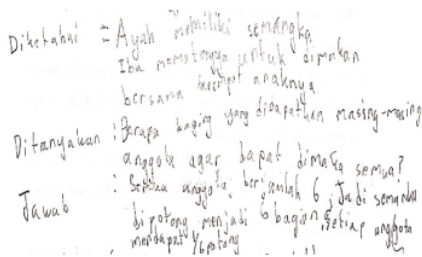 Diketahui = Ayah memiliki semangka
Ibu memotongnya untuk dimakan
bersama keempat anaknya
Ditanyakan : Berapa bagian yang didapatkan masing-masing
anggota agar dapat dimakan semua?
Jawab : Semua anggota berjumlah 6, Jadi semangka
dipotong menjadi 6 bagian, setiap anggota
mendapat 1/6 potong